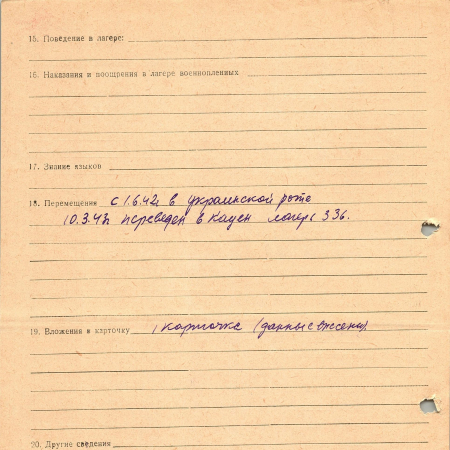 15. Поведение в лагере:
16. Наказания и поощрения в лагере военнопленных
17. Знание языков
18. Перемещения с 1.6.42г в украинской роте
10.3.43г переведен в Кауен лагерь 336.
19. Вложения в карточку 1 карточка (данные внесены).
20. Другие сведения